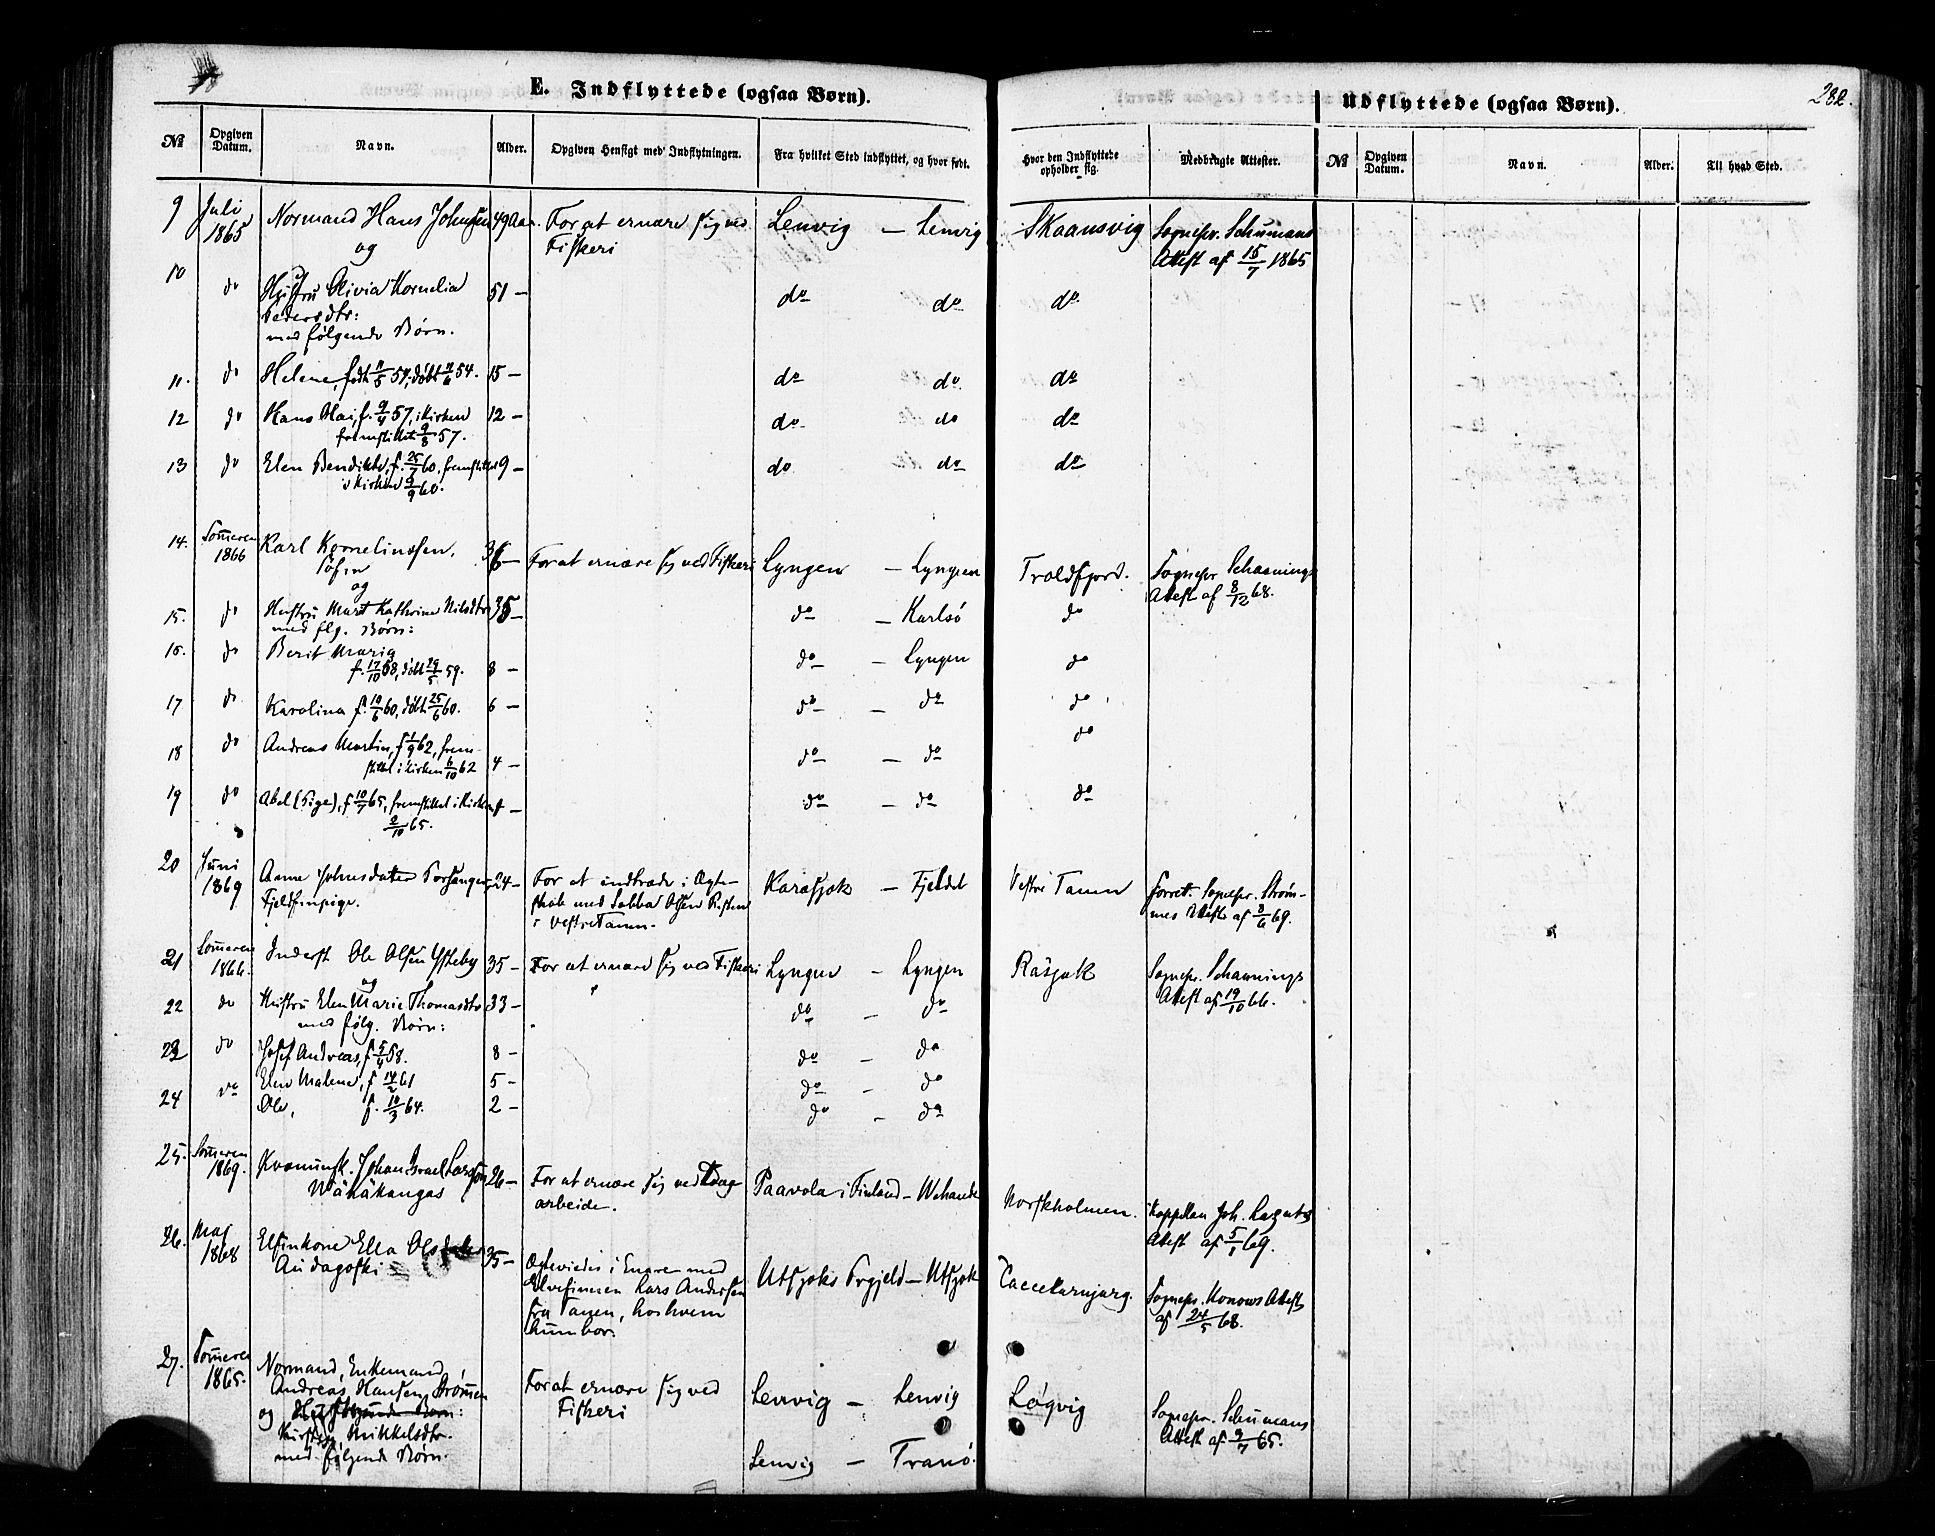 E. Indflyttede (ogsaa Børn).
Udflyttede (ogsaa Børn).
282.
№ Opgiven Datum. Navn. Alder. Opgiven Hensigt med Indflytningen. Fra hvilket Sted indflyttet, og hvor født. Hvor den Indflyttede opholder sig. Medbragte Attester. № Opgiven Datum. Navn. Alder. Til hvad Sted.
9 Juli 1865 Normand Hans Johnsen 49 Aar. For at ernære sig ved Lenvig — Lenvig Skaansvig Sognepr. Schumans
og Fiskeri Attest af 15/7 1865
10 do Hustru Olivia Kornelia 51 — do do do
Pedersdtr:
med følgende Børn.
11. do Helene, født 11/5 54, døbt 11/6 54. 15 — do do do
12 do Hans Olai, f. 9/4 57, i Kirken 12 — do do do
fremstillet 9/8 57.
13 do Elen Bendikte, f. 25/7 60, fremstillet 9 — do do do
i Kirken 9/9 60.
14. Sommeren 1866 Karl Kornelinssen, 36 — For at ernære sig ved Fiskeri Lyngen — Lyngen Troldfjord. Sognepr. Schaanings
og Attest af 8/12 68.
15. do Hustru Marit Kathrine Nilsdtr 35 — do — Karlsö do
med flg. Børn:
16. do Berit Maria
f. 17/10 58, døbt 29/5 59. 8 — do — Lyngen do
17 do Karolina f. 10/6 60, døbt 25/6 60. 6 — do — do do
18 do Andreas Martin, f. 1/9 62, frem-
stillet i Kirken 6/10 62 4 — do — do do
19 do Abel (Pige), f. 10/7 65, fremstillet i Kirken — do — do do
2/10 65.
20 Juni 1869 Anne Johnsdatter Porsanger, 24 — For at indtræde i Ægte- Karasjok — Fjeldet Vestre Tanen Forrett. Sognepr. Strøm-
Fjeldfinpige. skab med Sabba Olsen mes Attest af 8/6 69.
i Vestre Tanen.
21 Sommeren 1866. Inderst Ole Olsen Ytteby 35 — For at ernære sig ved Fiskeri Lyngen — Lyngen Rasjok Sognepr. Schaanings
og Attest af 19/10 66.
22 do Hustru Elen Marie Thomasdtr 33 — do — do
med følg. Børn:
23 do Josef Andreas, f. 5/4 58. 8 — do — do
Elen Malene, f. 14/2 61 5 — do — do
24 do Ole, f. 10/3 64. 2 — do — do
25. Sommeren 1869. Kvænungk. Johan Israel Larsson 26 — For at ernære sig ved Dag- Paavola i Finland — Norskholmen. Kappellan Joh.
Wähäkangas arbeide. Attest af 5/1 69.
26. Maj 1868 Elfinkone Ella Ols 35 — Ægteviedes i Enare med Utsjoks Prgjeld — Utsjok Sognepr. Konows Attest
Audagoski Elvefinnen Lars Andersen af 24/5 68.
fra Tanen, hos hvem
hun bor.
27. Sommeren 1865. Normand, Enkemand
Andreas Hansen Strømen For at ernære sig ved Lenvig — Lenvig Løqvig Sognepr. Schumans
og Fiskeri Attest af 9/7 65.
Mikkelsdtr.
med følgende Børn. Lenvig — Tranö.